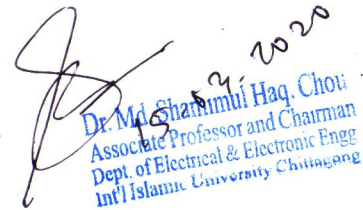 15.02.2020
Dr. Md. Shamimul Haq. Chou
Associate Professor and Chairman
Dept. of Electrical & Electronic Engg
Int'l Islamic University Chittagong